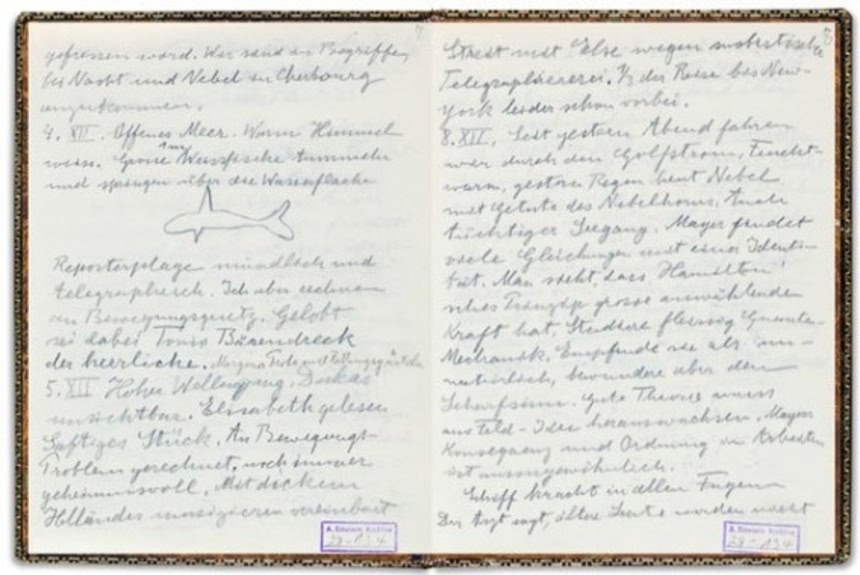 7
gefressen ward. Wir sind im Begriffe,
bei Nacht und Nebel in Cherbourg
anzukommen.
4. XII. Offenes Meer. Warm Himmel
weiss. Grosse Walfische tummeln
und springen über die Wasserfläche
Reporterplage mündlich und
telegraphisch. Ich aber rechnen
an Bewegungsgesetz. Gelobt
sei dabei Toni's Bärendreck
der herrliche. Morgens
5. XII Hoher Wellengang, Dukas
unsichtbar. Elisabeth gelesen
Saftiges Stück. An Bewegungs-
Problem gerechnet, noch immer
geheimnisvoll. Mit dickem
Holländer musizieren vereinbart
A. Einstein Archive
29-134
8
Streit mit Else wegen
Telegraphiererei. 1/3 der Reise bis New-
York leider schon vorbei.
8. XII. Seit gestern Abend fahren
wir durch den Golfstrom, Feucht-
warm, gestern Regen heut Nebel
mit Getute des Nebelhorns. Auch
tüchtiger Seegang. Mayer findet
viele Gleichungen mit einer Identi-
tät. Man sieht, dass Hamilton'
sches Prinzip grosse auswählende
Kraft hat. Studiere fleissig Quanten-
Mechanik. Empfinde sie als un-
natürlich, bewundere aber den
Scharfsinn. Gute Theorie muss
aus Feld-Idee herauswachsen. Mayers
Konsequenz und Ordnung im Arbeiten
ist aussergewöhnlich.
Schiff kracht in allen Fugen
Der Arzt sagt, ältere Leute werden nicht
A. Einstein Archive
29-134